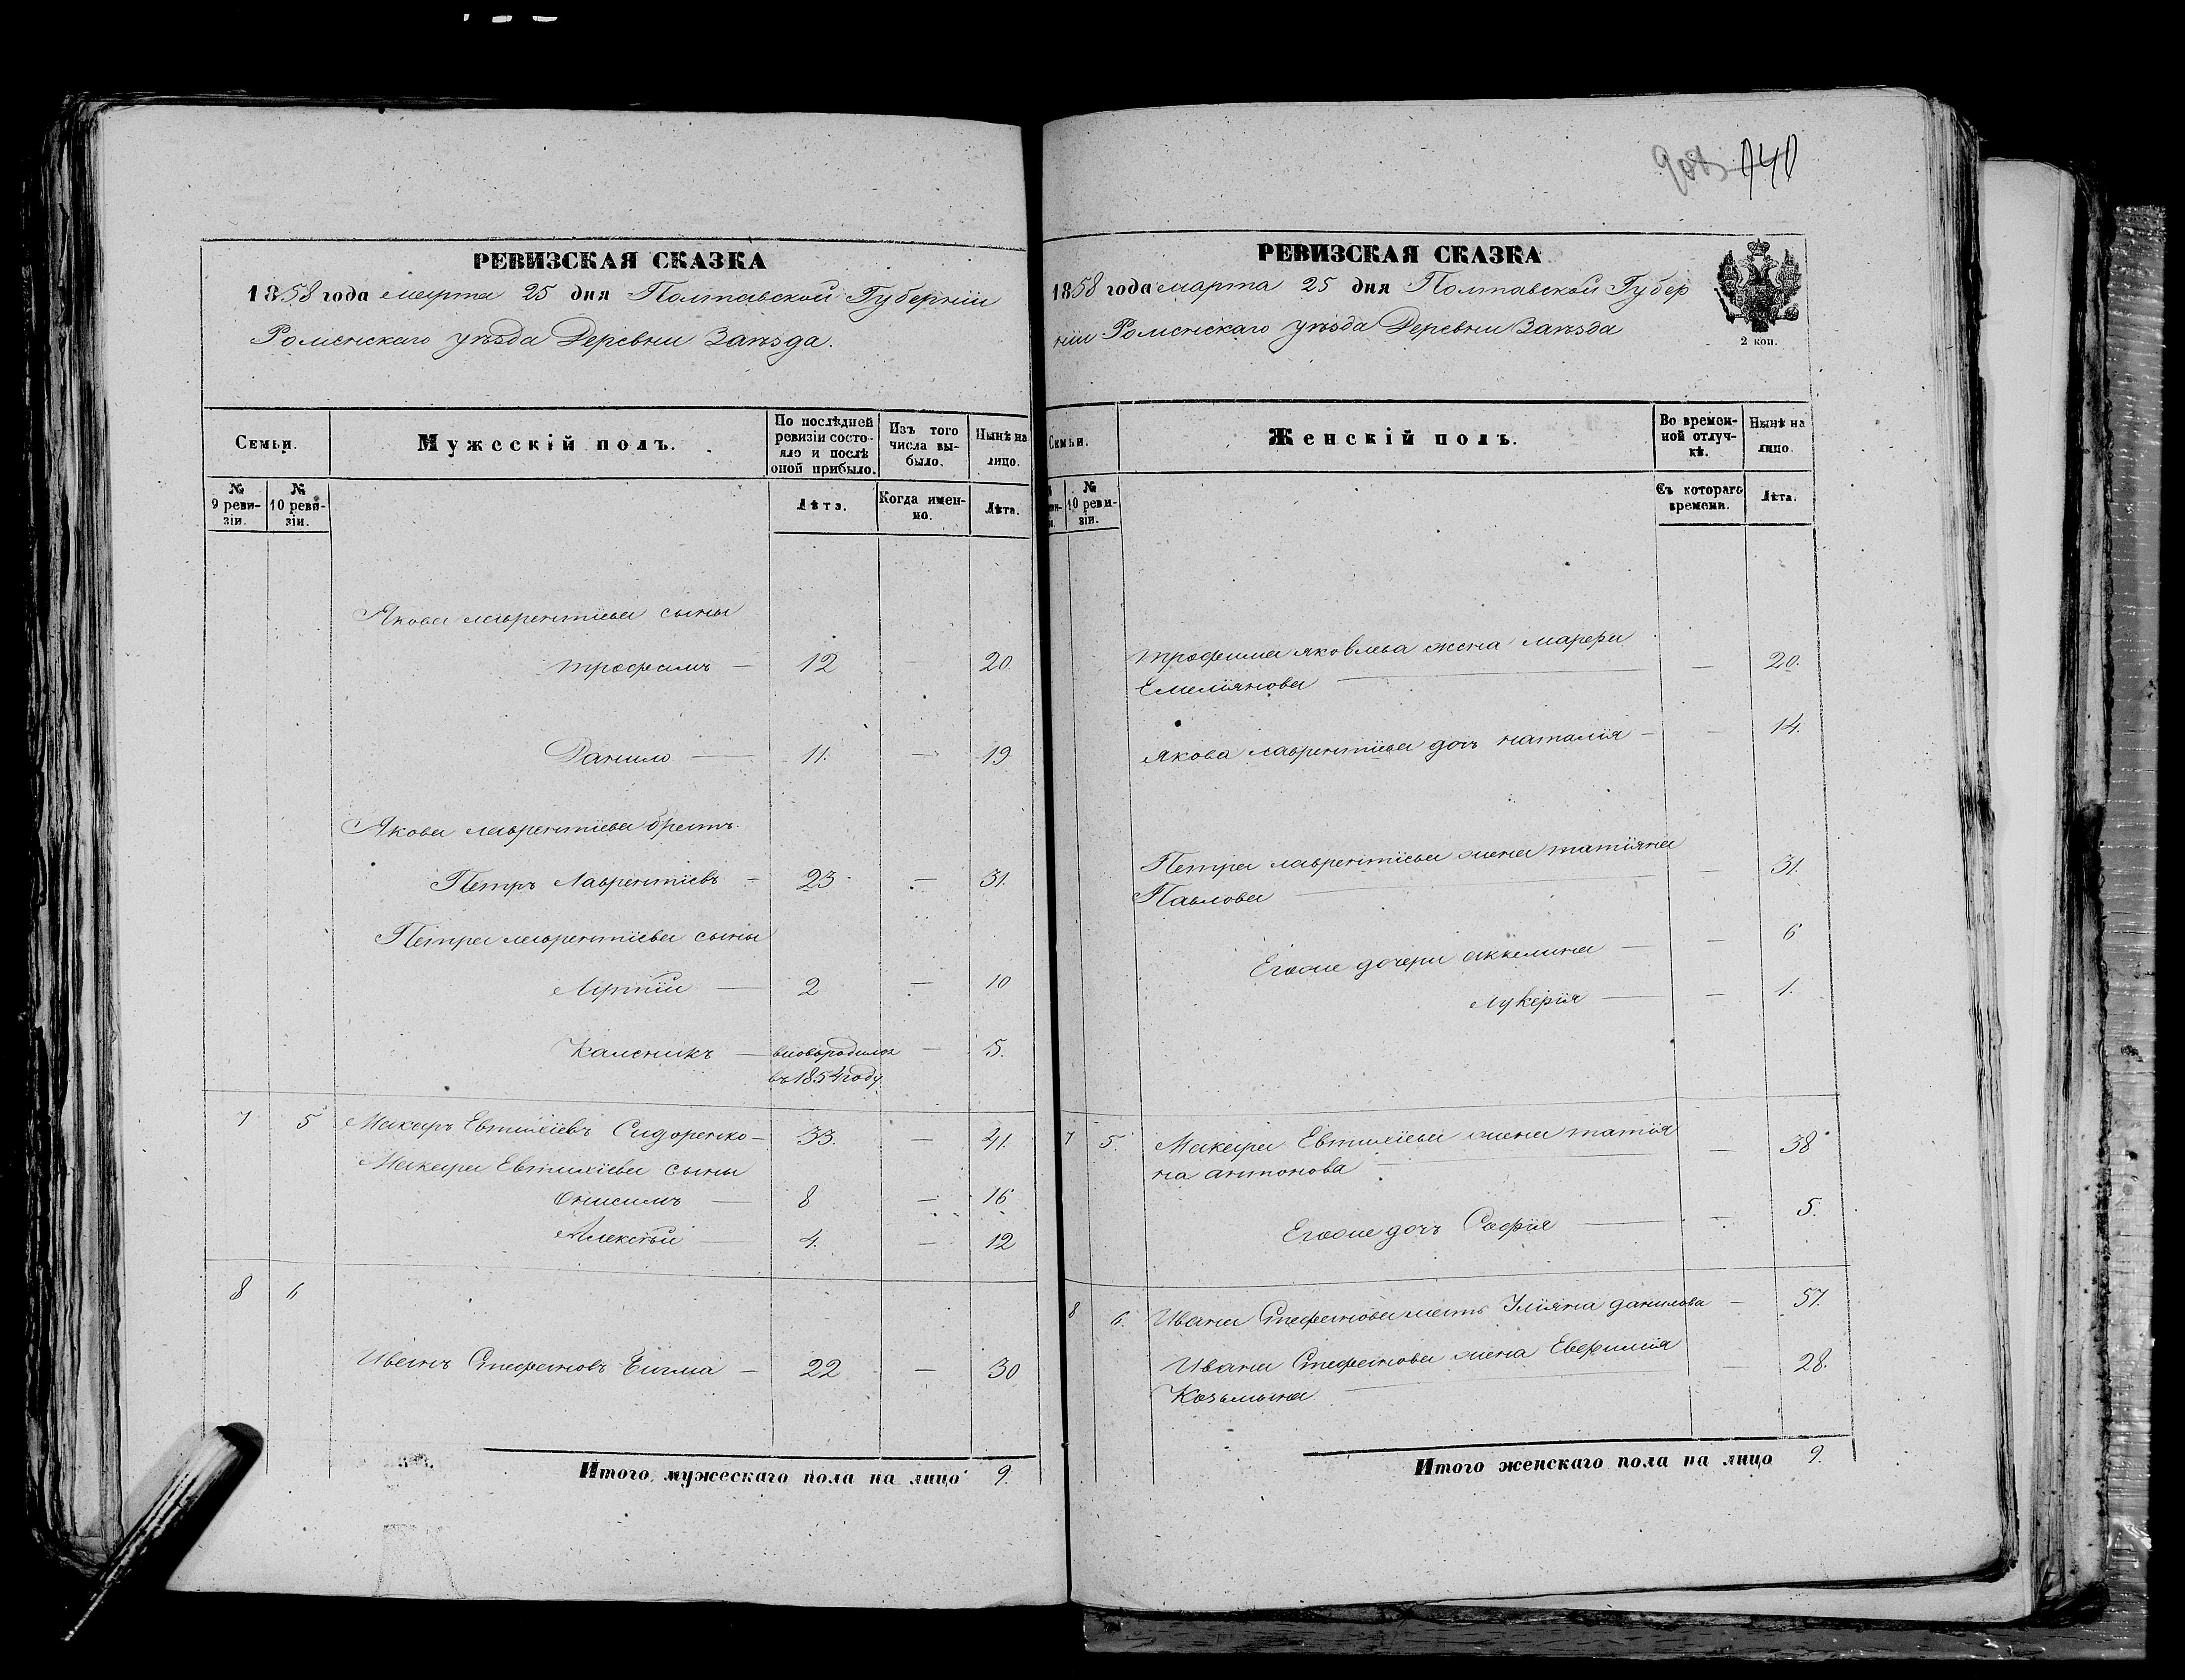 РЕВИЗСКАЯ СКАЗКА
1858 года марта 25 дня Полтавской Губерніи
Роменскаго уѣзда Деревни Заѣзда.
Семьи.
Мужескій полъ.
По послѣдней ревизіи состояло и послѣ оной прибыло.
Изъ того числа выбыло.
Нынѣ на лицо.
№ 9 ревизіи.
№ 10 ревизіи.
Лѣта.
Когда именно.
Лѣта.
Якова лаврентіева сыны
трофимъ — 12 20.
Данило — 11. — 19
Якова лаврентіева братъ
Петръ Лаврентіевъ — 23 — 31.
Петра лаврентіева сыны
2 — 10
Каленикъ — вновьродился — 5.
въ 1854 году
7 5 Макаръ Евтихіевъ Сидоренко — 33. — 41.
Макара Евтихіева сыны
Онисимъ — 8 — 16
Алексѣй — 4. — 12
8 6
Иванъ Стефановъ — 22 — 30
Итого мужескаго пола на лицо 9.
908 940
РЕВИЗСКАЯ СКАЗКА
1858 года марта 25 дня Полтавской Губер
ніи Роменскаго уѣзда Деревни Заѣзда
2 коп.
Семьи.
Женскій полъ.
Во временной отлучкѣ.
Нынѣ на лицо.
№ 10 ревизіи.
Съ котораго времени.
Лѣта.
трофима яковлева жена марфа
Емеліянова — — 20.
Якова лаврентіева дочь наталія — — 14.
Петра лаврентіева жена татіяна
Павлова — — 31.
Егоже дочери акилина — — 6
лукерія — — 1.
7 5. Макара Евтихіева жена татія
на антонова — — 38
Егоже дочь Софія — — 5.
8 6. Ивана Стефанова мать Уліяна данилова — 57.
Ивана Стефанова жена Евфимія
Козьмына — — 28.
Итого женскаго пола на лицо 9.